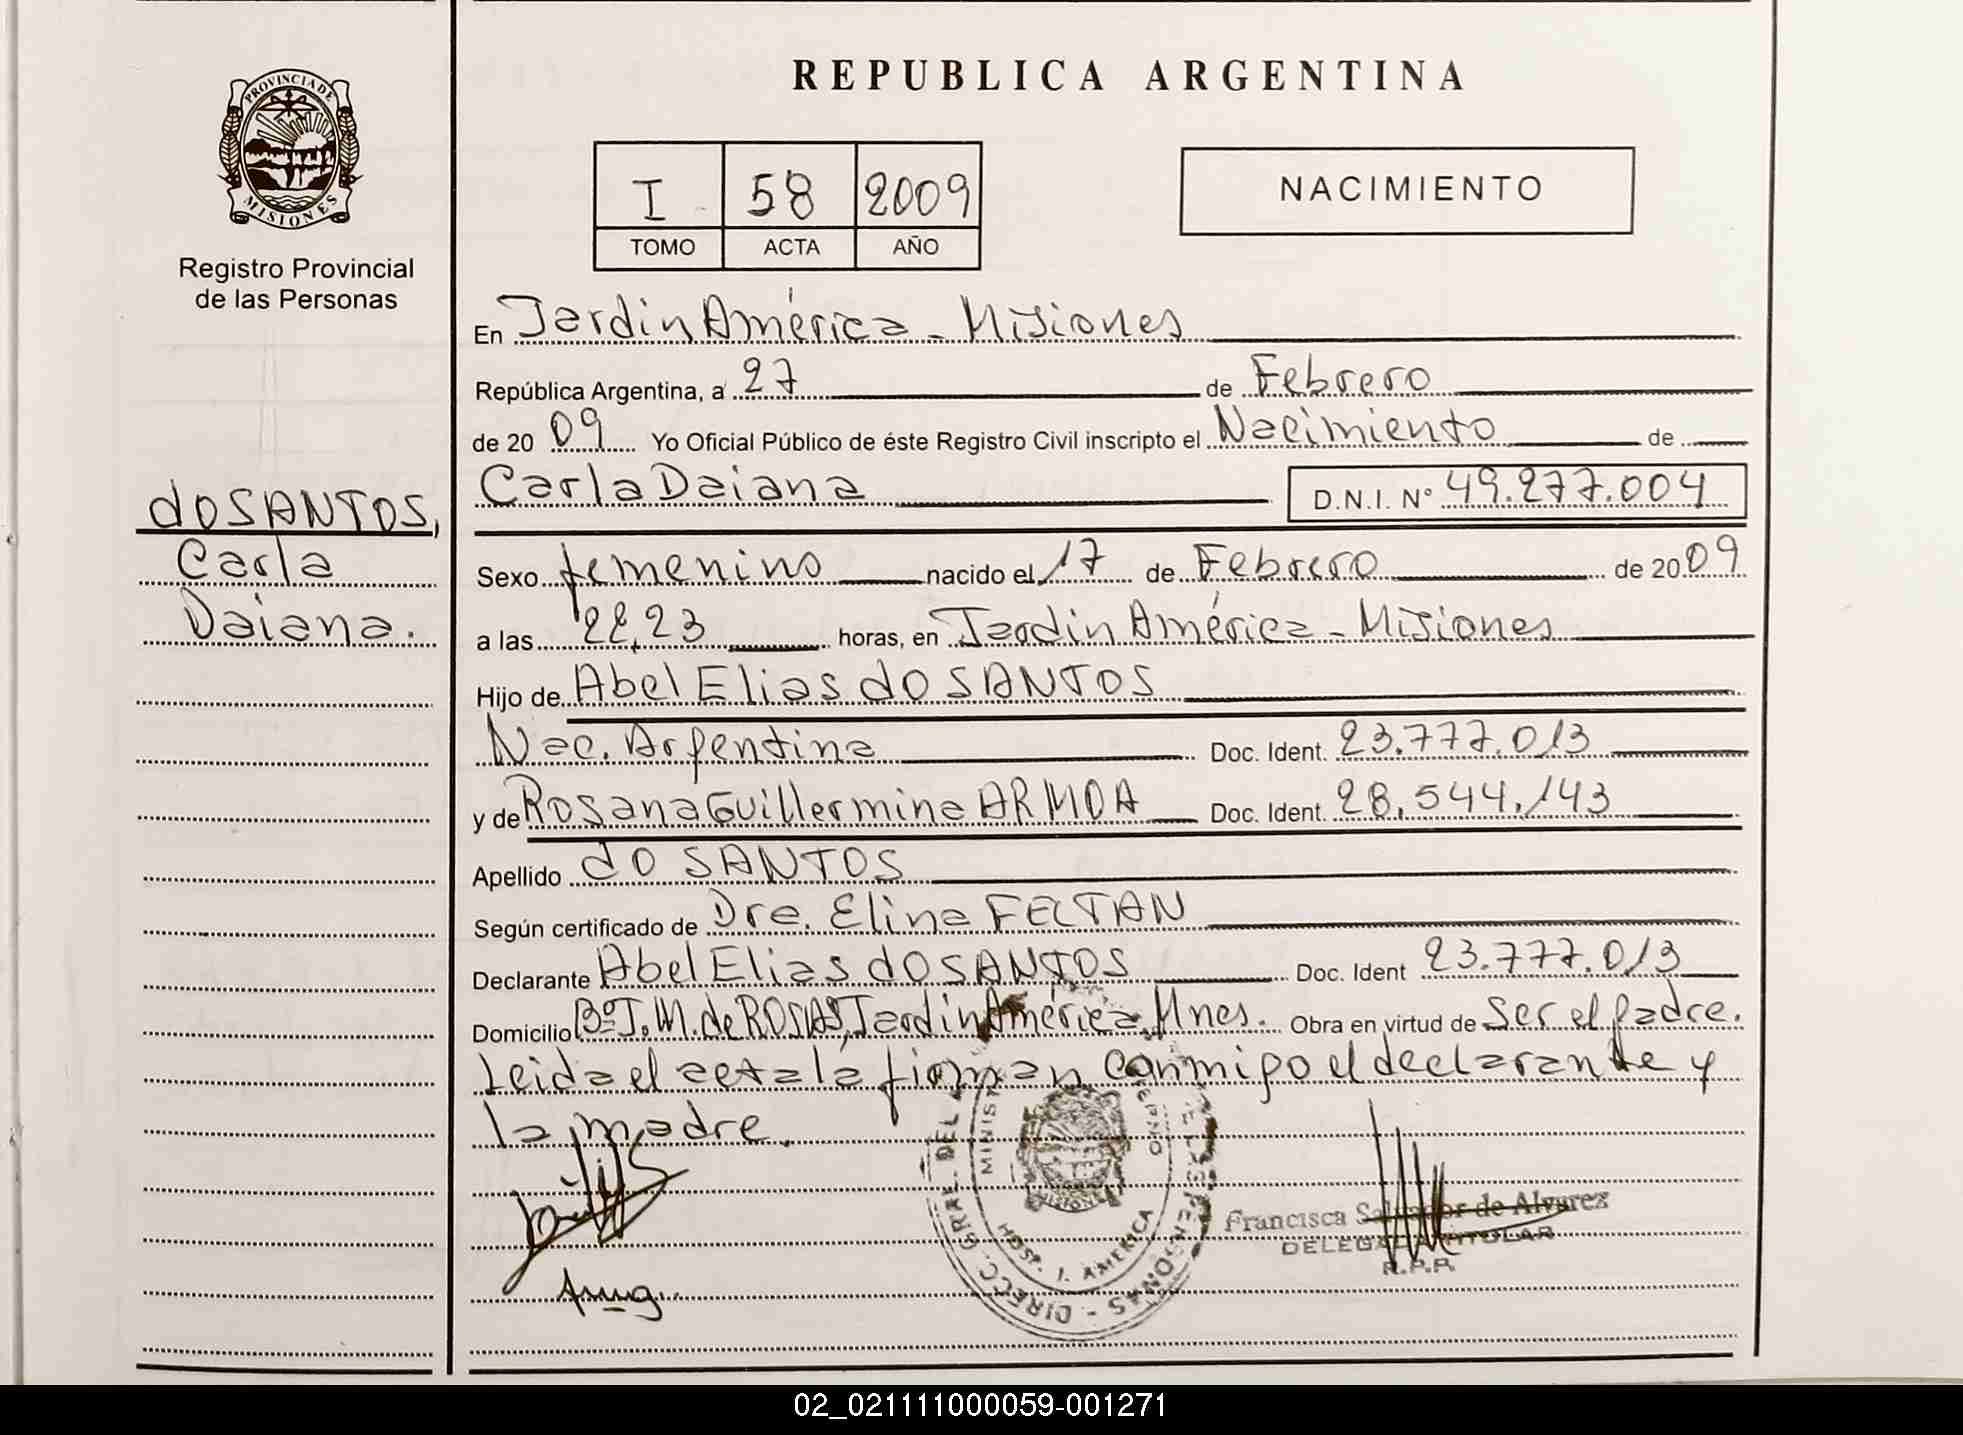 REPUBLICA ARGENTINA
PROVINCIA DE
MISIONES
Registro Provincial
de las Personas
I 58 2009
TOMO ACTA AÑO
NACIMIENTO
En Jardin América - Misiones
República Argentina, a 27 de Febrero
de 20 09 Yo Oficial Público de éste Registro Civil inscripto el Nacimiento de
Carla Daiana D.N.I. Nº 49.277.004
do SANTOS,
Carla
Daiana.
Sexo femenino nacido el 17 de Febrero de 2009
a las 22,23 horas, en Jardin América - Misiones
Hijo de Abel Elias do SANTOS
Nac. Argentina Doc. Ident. 23.777.013
y de Rosana Guillermina ARMOA Doc. Ident. 28.544.143
Apellido do SANTOS
Según certificado de Dra. Elina FELTAN
Declarante Abel Elias do SANTOS Doc. Ident 23.777.013
Domicilio Bº J.M. de ROSAS, Jardin América, Mnes. Obra en virtud de Ser el padre.
Leida el acta la firman conmigo el declarante y
la madre.
DIRECC. GRAL. DEL
HOSP. J. AMERICA
Francisca Salvador de Alvarez
DELEGADA TITULAR
R.P.P.
02_021111000059-001271